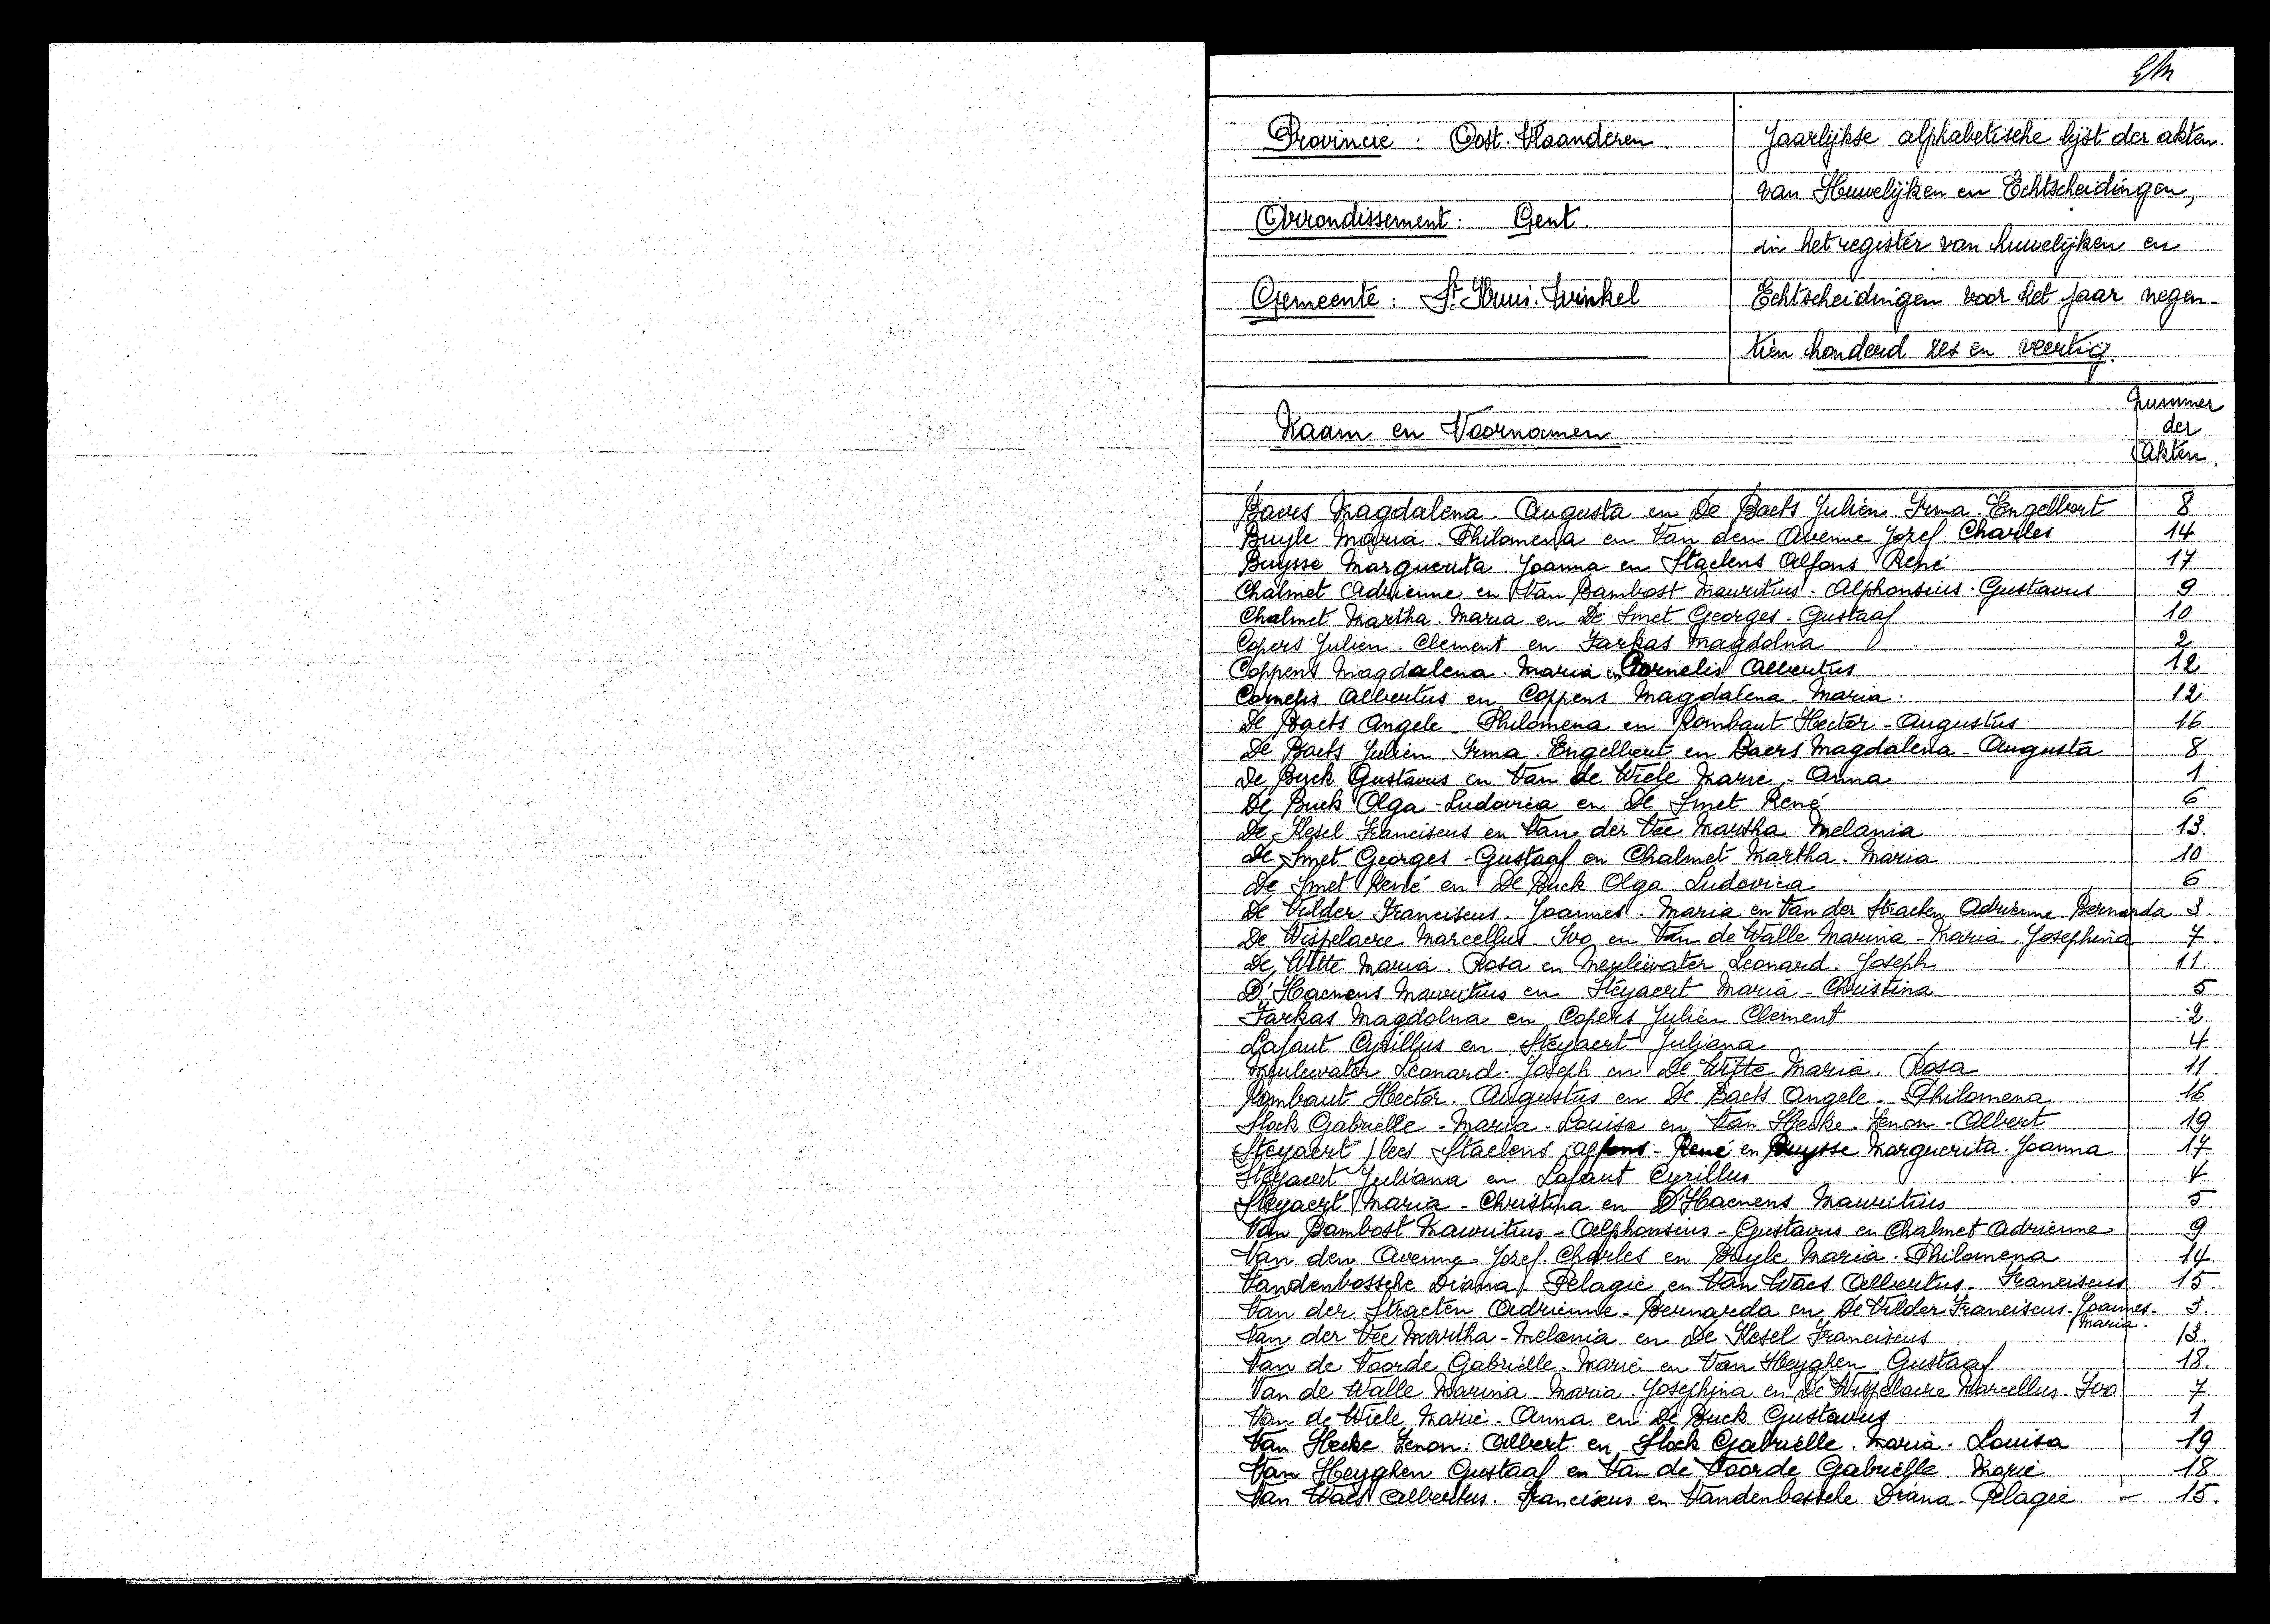 Provincie : Oost-Vlaanderen.
Arrondissement : Gent.
Gemeente : St. Kruis-Winkel
Jaarlijkse alphabetische lijst der akten
van Huwelijken en Echtscheidingen,
in het register van huwelijken en
Echtscheidingen voor het jaar negen-
tien honderd zes en veertig.
Naam en Voornamen
Nummer
der
Akten.
Baers Magdalena - Augusta en De Baets Julien Irma Engelbert 8
Buyle Maria Philomena en Van den Avenne Jozef Charles 14
Buysse Marguerita Joanna en Staelens Alfons René 17
Chalmet Adrienne en Van Bambost Mauritius - Alphonsius - Gustavus 9
Chalmet Martha - Maria en De Smet Georges - Gustaaf 10
Copers Julien - Clement en Farkas Magdolna 2
Coppens Magdalena - Maria en Cornelis Albertus 12
Cornelis Albertus en Coppens Magdalena - Maria 12
De Baets Angele - Philomena en Rombaut Hector - Augustus 16
De Baets Julien - Irma - Engelbert en Baers Magdalena - Augusta 8
De Buck Gustavus en Van de Wiele Marie - Anna 1
De Buck Olga - Ludovica en De Smet René 6
De Kesel Franciscus en Van der Vee Martha Melania 13
De Smet Georges - Gustaaf en Chalmet Martha - Maria 10
De Smet René en De Buck Olga Ludovica 6
De Vilder Franciscus - Joannes - Maria en Van der Straeten Adrienne - Bernarda 3
De Wispelaere Marcellus Ivo en Van de Walle Marina - Maria - Josephina 7
De Witte Maria - Rosa en Meulewater Leonard - Joseph 11
D'Haenens Mauritius en Steyaert Maria - Christina 5
Farkas Magdolna en Copers Julien Clement 2
Lafaut Cyrillus en Steyaert Juliana 4
Meulewater Leonard - Joseph en De Witte Maria - Rosa 11
Rombaut Hector - Augustus en De Baets Angele - Philomena 16
Stock Gabriëlle - Maria - Louisa en Van Hecke Zenon - Albert 19
Steyaert / lees Staelens Alfons - René en Buysse Marguerita - Joanna 17
Steyaert Juliana en Lafaut Cyrillus 4
Steyaert Maria - Christina en D'Haenens Mauritius 5
Van Bambost Mauritius - Alphonsius - Gustavus en Chalmet Adrienne 9
Van den Avenne Jozef - Charles en Buyle Maria - Philomena 14
Vandenbossche Diana Pelagie en Van Waes Albertus - Franciscus 15
Van der Straeten Adrienne - Bernarda en De Vilder Franciscus - Joannes - 3
Maria.
Van der Vee Martha - Melania en De Kesel Franciscus 13
Van de Voorde Gabriëlle - Marie en Van Heyghen Gustaaf 18
Van de Walle Marina - Maria - Josephina en De Wispelaere Marcellus - Ivo 7
Van de Wiele Marie - Anna en De Buck Gustavus 1
Van Hecke Zenon - Albert en Stock Gabriëlle - Maria - Louisa 19
Van Heyghen Gustaaf en Van de Voorde Gabriëlle Marie 18
Van Waes Albertus - Franciscus en Vandenbossche Diana - Pelagie 15.